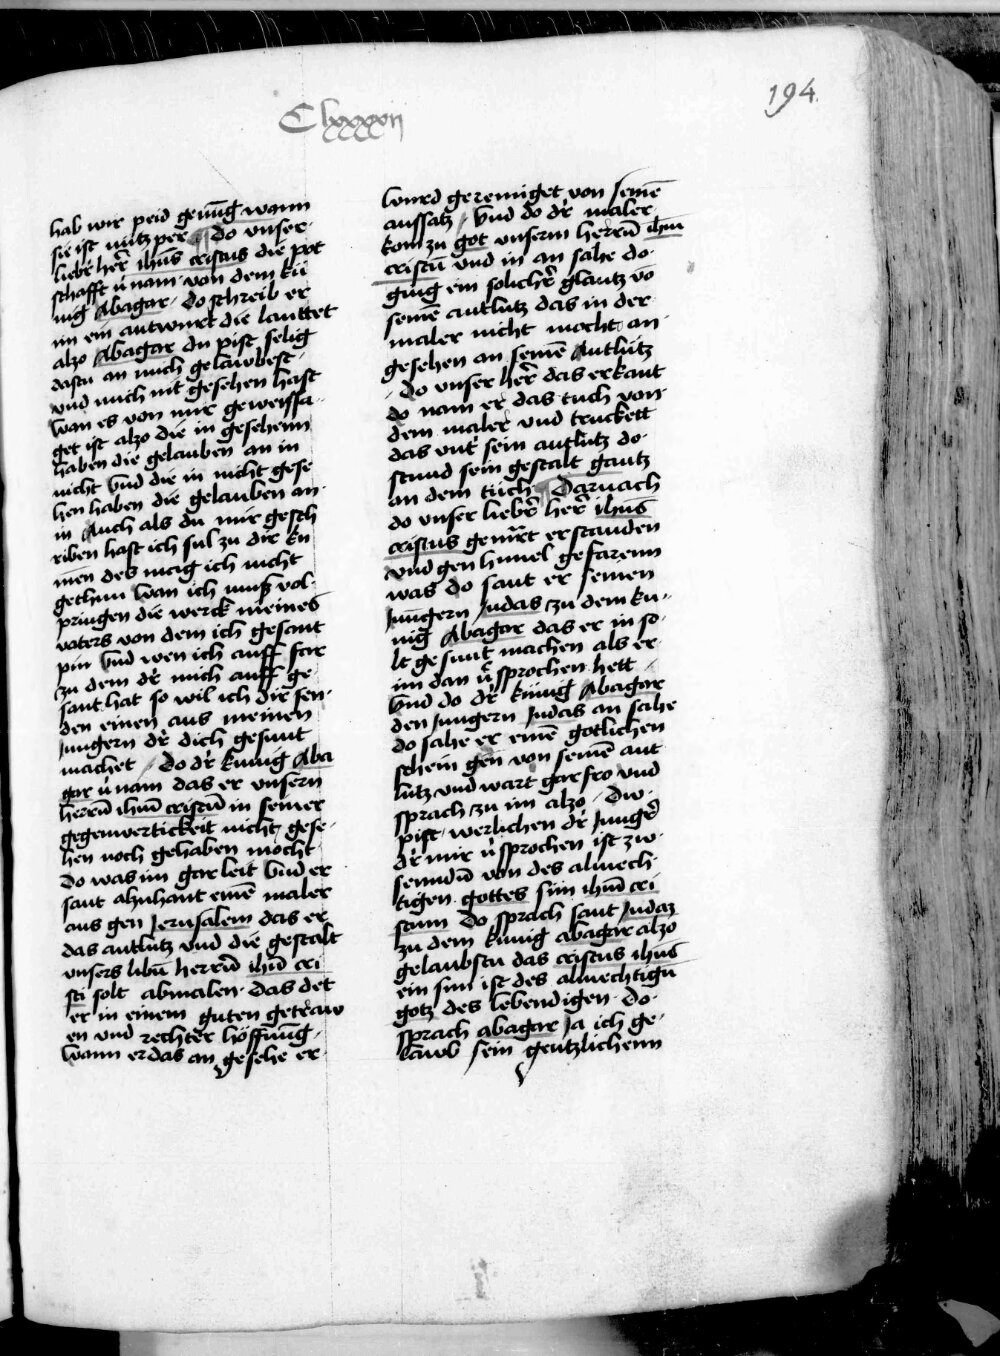 Clxxxxij
194.
hab wir peid genūg wann
sie ist nutzper ¶ do vnser
lieb̾ her̄ ih̄us cristus die pot
schafft v̾nam von dem kü
nig Abagar / do schreib er
im ein antwurt die lauttet
alzo Abagar du pist selig
dastu an mich gelawbest /
vnd mich nit gesehen hast
wan es von mir geweissa
get ist alzo die in gesehenn
haben die gelauben an in
nicht vnd die in nicht gese
hen haben die gelauben an
in Auch als du mir gesch
riben hast ich sul zu dir ku
men des mag ich nicht
gethun wan ich muß vol
pringen die werck meines
vaters von dem ich gesant
pin vnd wen ich auff far
zu dem d̾ mich auff ge
sant hat so wil ich dir sen
den einen aus meinen
Jungern d̾ dich gesunt
machet / do d̾ kunig Aba
gar v̾nam das er vnsern
herrn̄ ih̄m cristū in seiner
gegenwertickeit nicht gese
hen noch gehaben mocht
do was im gar leit vnd er
sant ahnhant einē maler
aus gen Jerusalem das er
das antlutz vnd die gestalt
vnsers libn̄ herrn̄ ih̄u cri
sti solt abmalen das det
er in einem guten getraw
en vnd rechter hoffnūg
wann er das an gesehe er
wurd gereiniget von seinē
aussatz / vnd do d̾ maler
kom zu got vnserm herrn̄ ih̄m
cristū vnd in an sahe do
ging ein solicher glantz vō
seinē antlutz das in der
maler nicht mocht an
gesehen an seinē Antlutz
/ do vnser her̄ das erkant
do nam er das tuch von
dem maler vnd truckett
das vnt̾ sein antlutz do
stund sein gestalt gantz
an dem tuch ¶ Darnach
do vnser lieb̾ her̄ ih̄us
cristus gemart erstanden
vnd gen himel gefarenn
was do sant er seinen
Jungern Judas zu dem ku
nig Abagar das er in so
lt gesunt machen als er
im dan v̾sprochen hett /
vnd do d̾ künig Abagar
den Jungern Judas an sahe
do sahe er einē gotlichen
schein gen von seinē ant
lutz vnd wart gar fro vnd
sprach zu im alzo / Dw
pist werlichen d̾ Jung̾
d̾ mir v̾sprochen ist zw
sendn̄ von des almech
tigen gottes sun ih̄m cri
stum Do sprach sant Judas
zu dem künig abagar alzo
gelaubstu das cristus ih̄us
ein sun ist des almechtign̄
gotz des lebendigen Do
sprach abagar Ja ich ge
lawb sein gentzlichenn